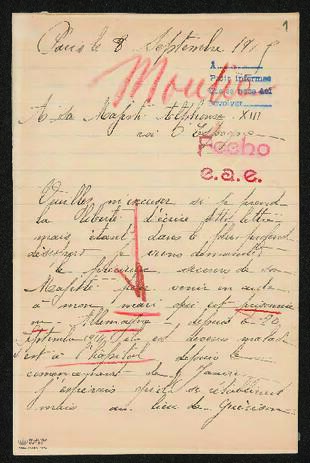 1
Paris le 8 Septembre 19
A
Pedir informes
Moulin
A sa Majesté Alphonse XIII
roi d'Espagne
Hecho
c.a.e.
Veuillez m'excuser si je prend
la liberté d'écrire cette lettre
mais étant dans le plus profond
désespoir je viens demander
le secours de
Majesté pour venir en aide
à mon mari qui est prisonnier
en Allemagne depuis le 20
Septembre 1914, est devenu malade
est à l'hôpital depuis le
commencement de Janvier
J'espérais qu'il se rétablirait
mais au lieu de Guérison